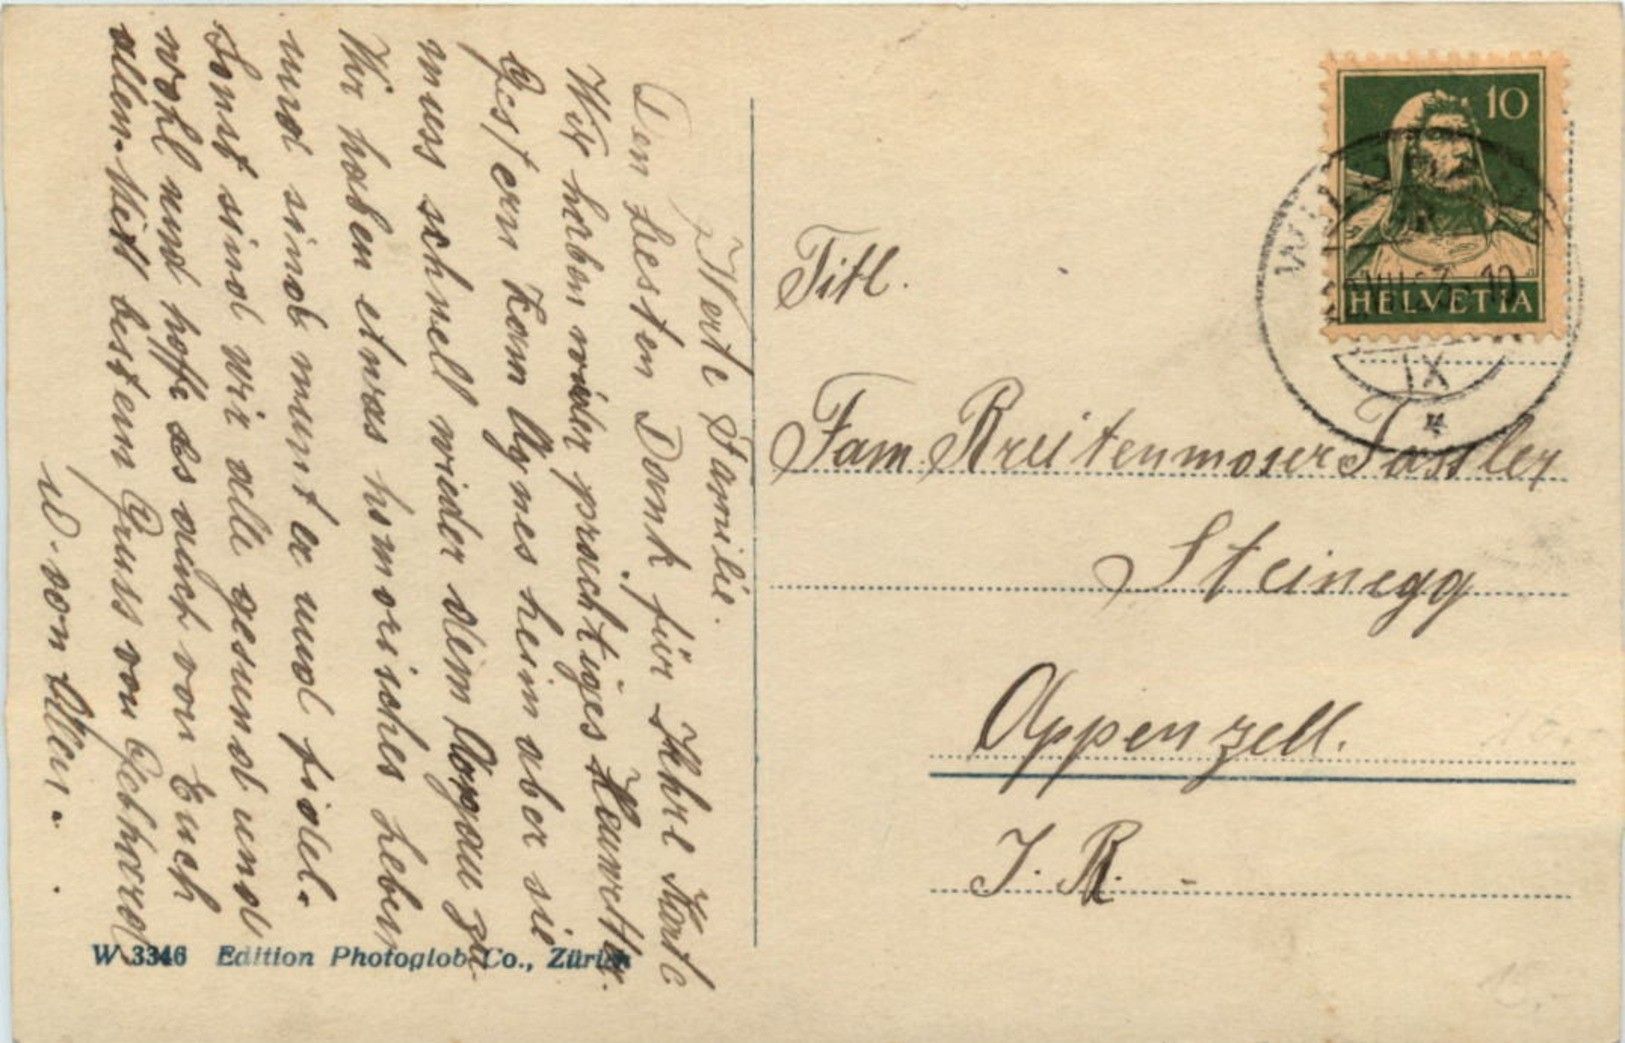 Werte Familie.
Den besten Dank für Ihre Karte
Wir haben wider prächtiges Heuwetter.
Gestern kam Agnes heim aber sie
mus schnell wider dem Aargau zu.
Wir haben etwas homorisches Leben
und sind munter und fidel.
Sonst sind wir alle gesund und
wohl und hoffe es auch von Euch
allen. Mitt bestem Gruss von Gebhard
u. von Allen.
W 3346 Edition Photoglob Co., Zürich
10
HELVETIA
IX
Titl.
Fam. Breitenmoser Fässler
Steinegg
Appenzell.
I. R. -